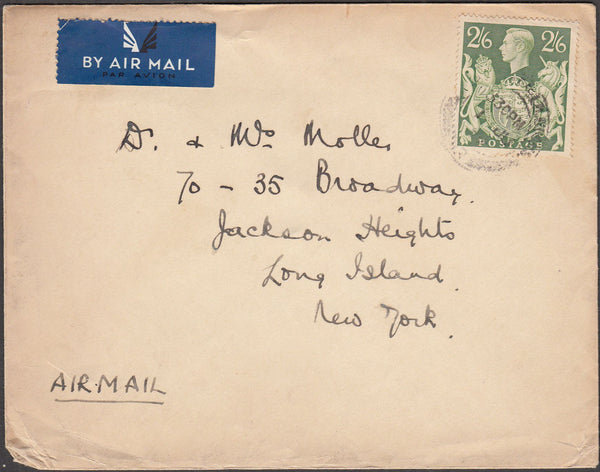 BY AIR MAIL
PAR AVION
2/6 2/6
POSTAGE
30PM
Dr. & Mrs Moller
70 - 35 Broadway.
Jackson Heights
Long Island.
New York.
AIR.MAIL